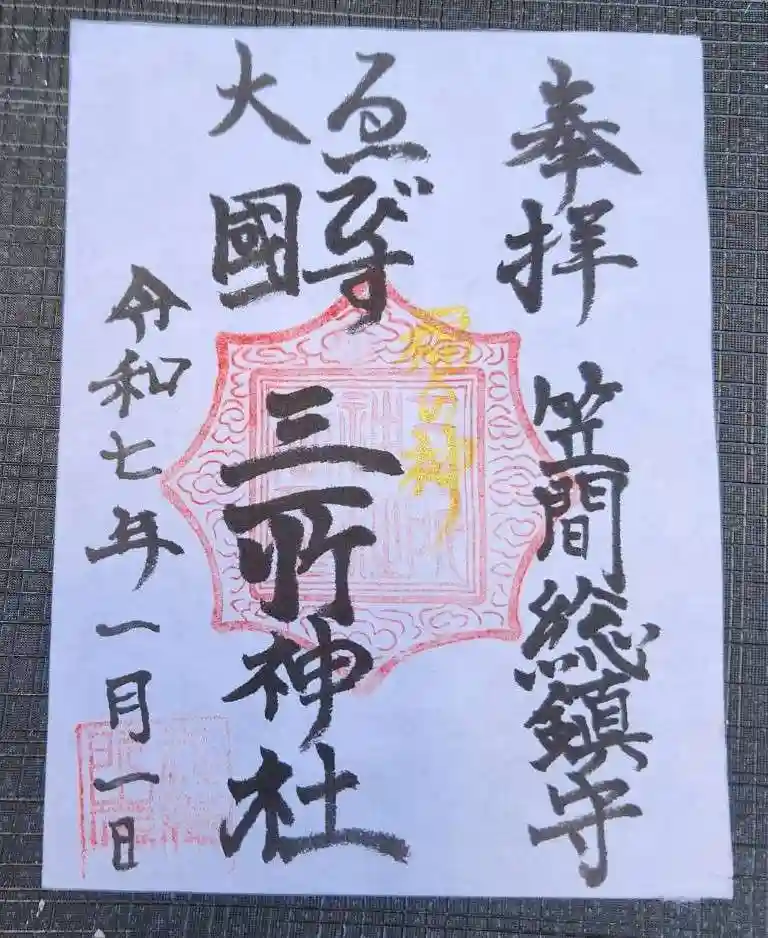 奉拝 笠間総鎮守
ゑびす
大國
三所神社
福の神
令和七年一月一日